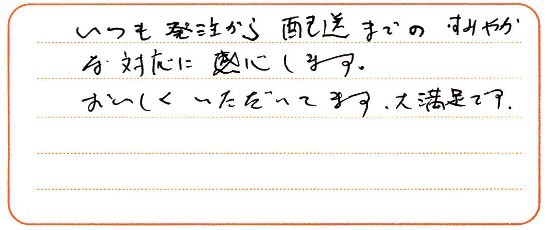 いつも発注から配送までのすみやか
な対応に感心します。
おいしくいただいてます、大満足です。